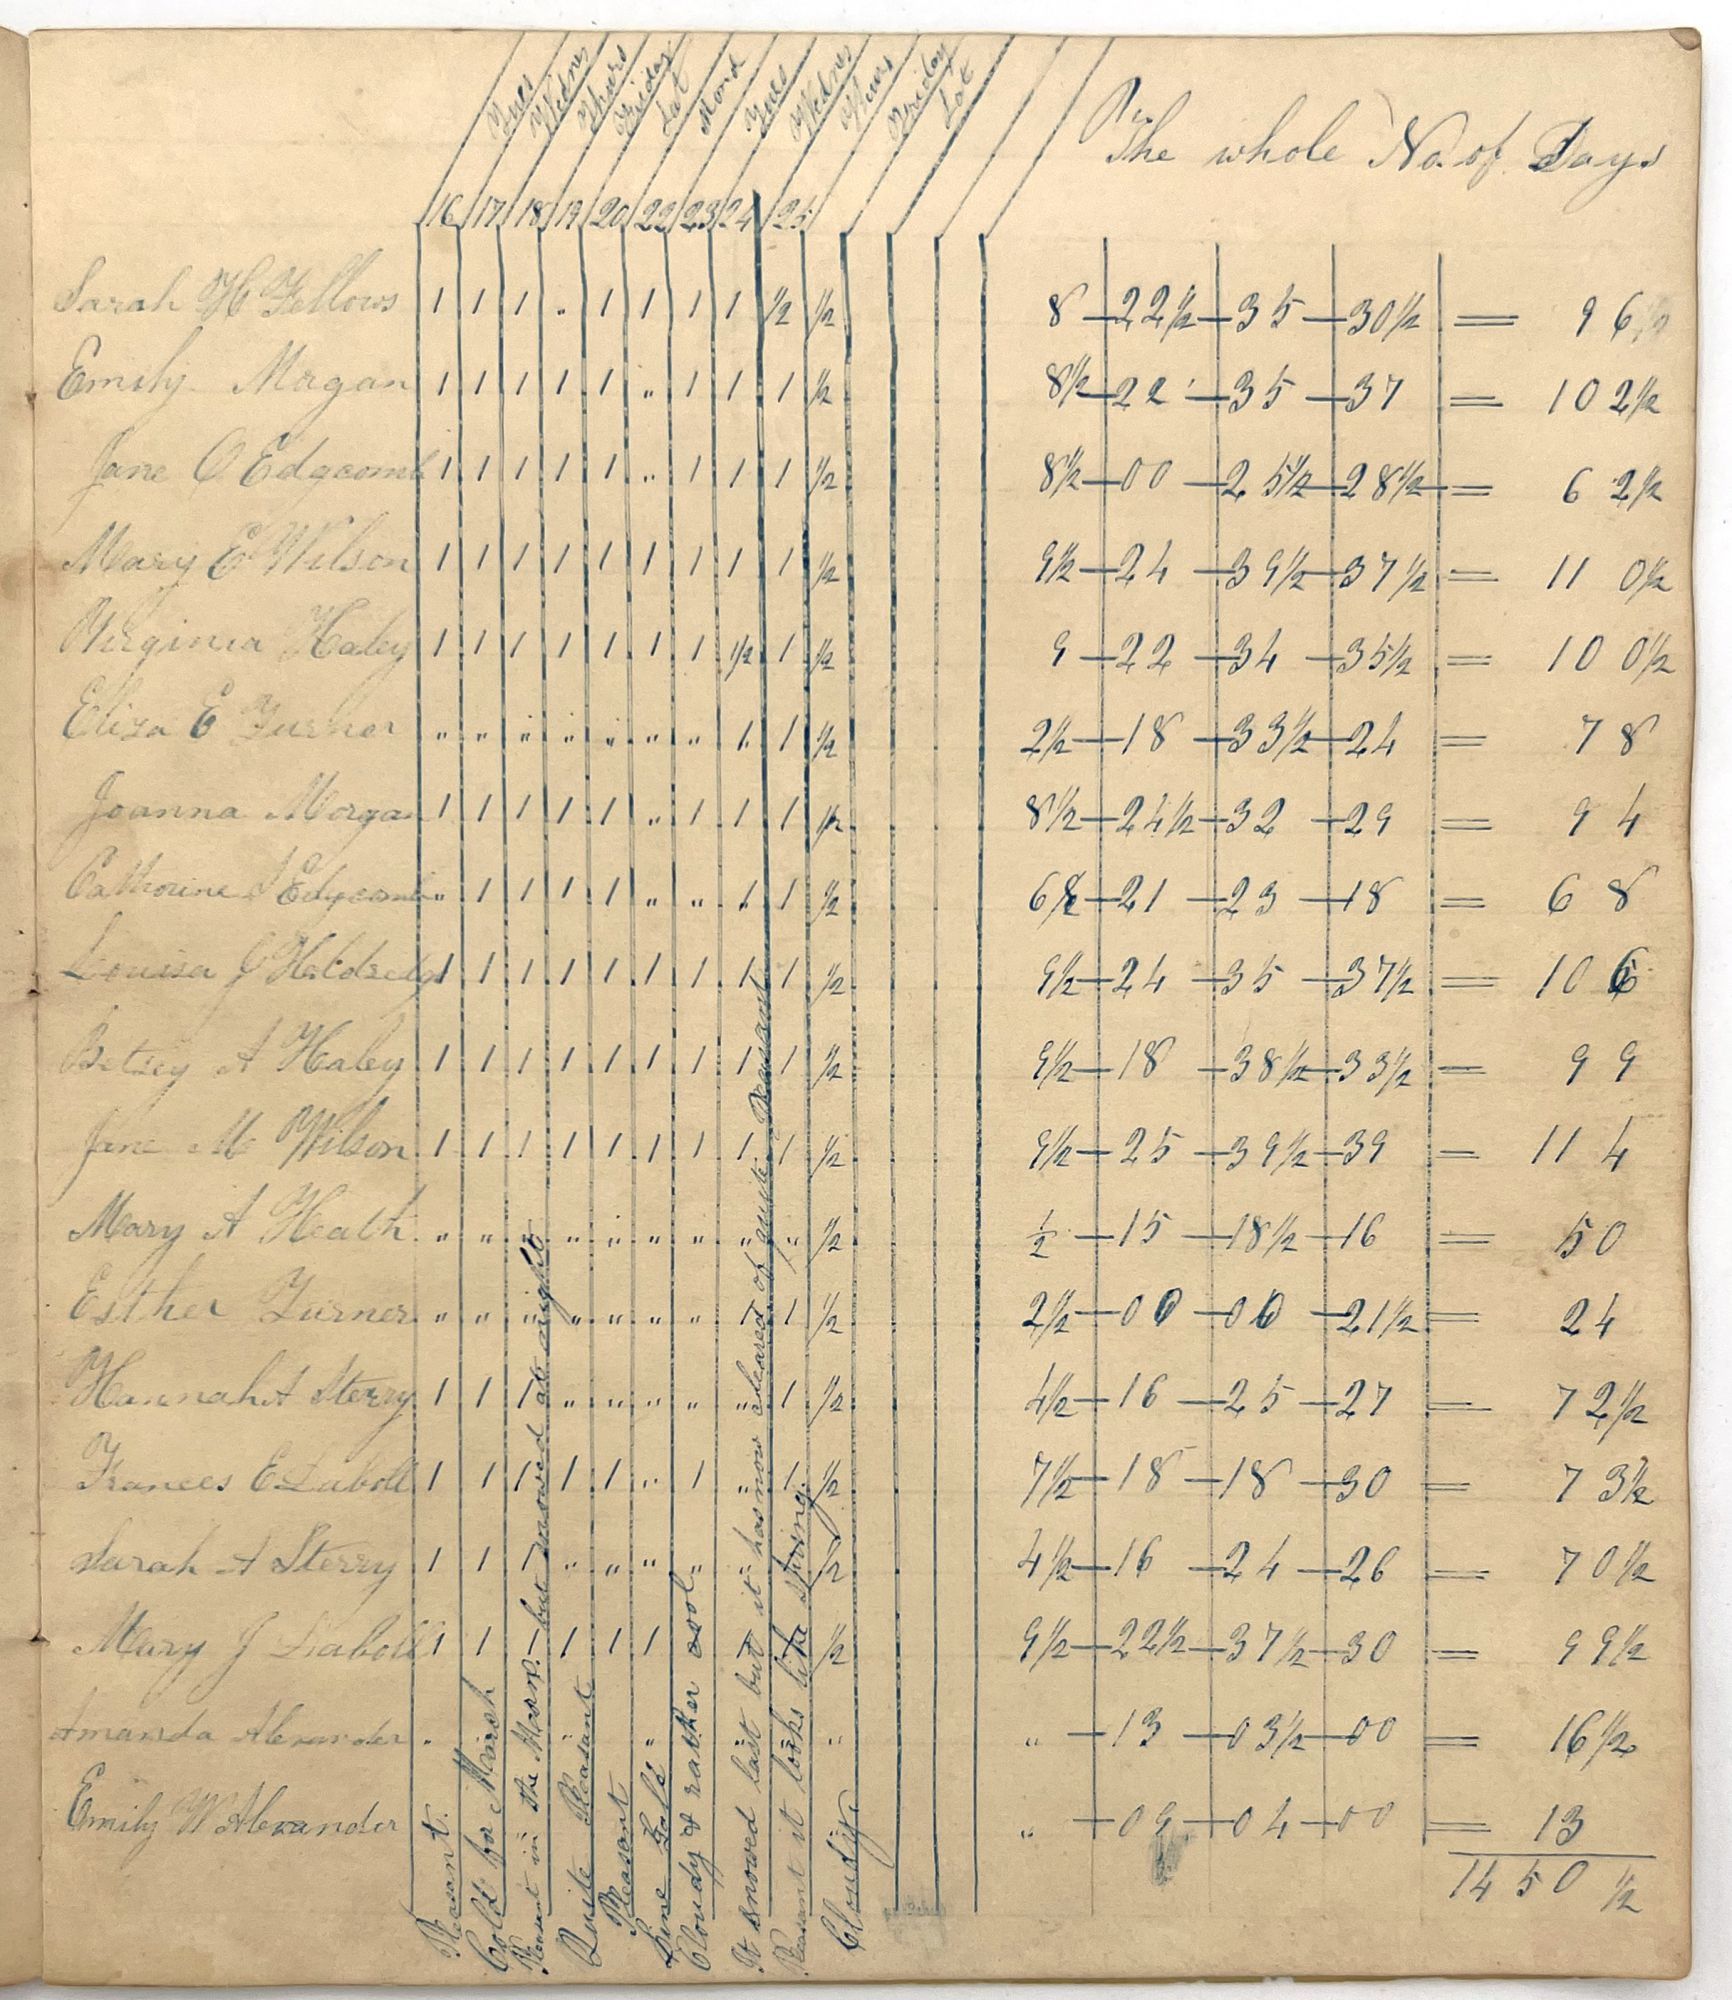 Tues Wednes Thurs Friday Sat Mond Tues Wednes Thurs Friday Sat
The whole No. of Days
16 17 18 19 20 22 23 24 25
Sarah H Fellows 1 1 1 " 1 1 1 1 1/2 1/2 8 — 22 1/2 — 35 — 30 1/2 = 96
Emily Morgan 1 1 1 1 1 " 1 1 1 1/2 8 1/2 — 22 — 35 — 37 = 102 1/2
Jane O Edgcomb 1 1 1 1 1 " 1 1 1 1/2 8 1/2 — 00 — 25 1/2 — 28 1/2 = 62 1/2
Mary E Wilson 1 1 1 1 1 1 1 1 1 1/2 9 1/2 — 24 — 39 1/2 — 37 1/2 = 110 1/2
Virginia Haley 1 1 1 1 1 1 1 1/2 1 1/2 9 — 22 — 34 — 35 1/2 = 100 1/2
Eliza E Turner " " " " " " " 1 1 1/2 2 1/2 — 18 — 33 1/2 — 24 = 78
Joanna Morgan 1 1 1 1 1 " 1 1 1 1/2 8 1/2 — 24 1/2 — 32 — 29 = 94
Catherine S Edgcomb " 1 1 1 1 " " 1 1 1/2 6 1/2 — 21 — 23 — 18 = 68
Louisa J Holdredge 1 1 1 1 1 1 1 1 1 1/2 9 1/2 — 24 — 35 — 37 1/2 = 106
Betsey A Haley 1 1 1 1 1 1 1 1 1 1/2 9 1/2 — 18 — 38 1/2 — 33 1/2 = 99
Jane M Wilson 1 1 1 1 1 1 1 1 1 1/2 9 1/2 — 25 — 39 1/2 — 39 = 114
Mary A Heath " " " " " " " " " 1/2 1/2 — 15 — 18 1/2 — 16 = 50
Esther Turner " " " " " " " 1 1 1/2 2 1/2 — 00 — 00 — 21 1/2 = 24
Hannah A Sterry 1 1 1 " " " " " 1 1/2 4 1/2 — 16 — 25 — 27 = 72 1/2
Frances E Laboll 1 1 1 1 1 " 1 " 1 1/2 7 1/2 — 18 — 18 — 30 = 73 1/2
Sarah A Sterry 1 1 1 " " " " " 1/2 4 1/2 — 16 — 24 — 26 = 70 1/2
Mary J Laboll 1 1 1 1 1 1 1 1 1/2 9 1/2 — 22 1/2 — 37 1/2 — 30 = 99 1/2
Amanda Alexander " " " " " " " — 13 — 03 1/2 — 00 = 16 1/2
Emily W Alexander " — 09 — 04 — 00 = 13
1450 1/2
Pleasant.
Cold for March
Pleasant in the Morn. but snowed at night
Quite Pleasant
Pleasant
Cloudy & rather cool
It snowed last but it has now cleared of quite Pleasant
Pleasant it looks like spring.
Cloudy